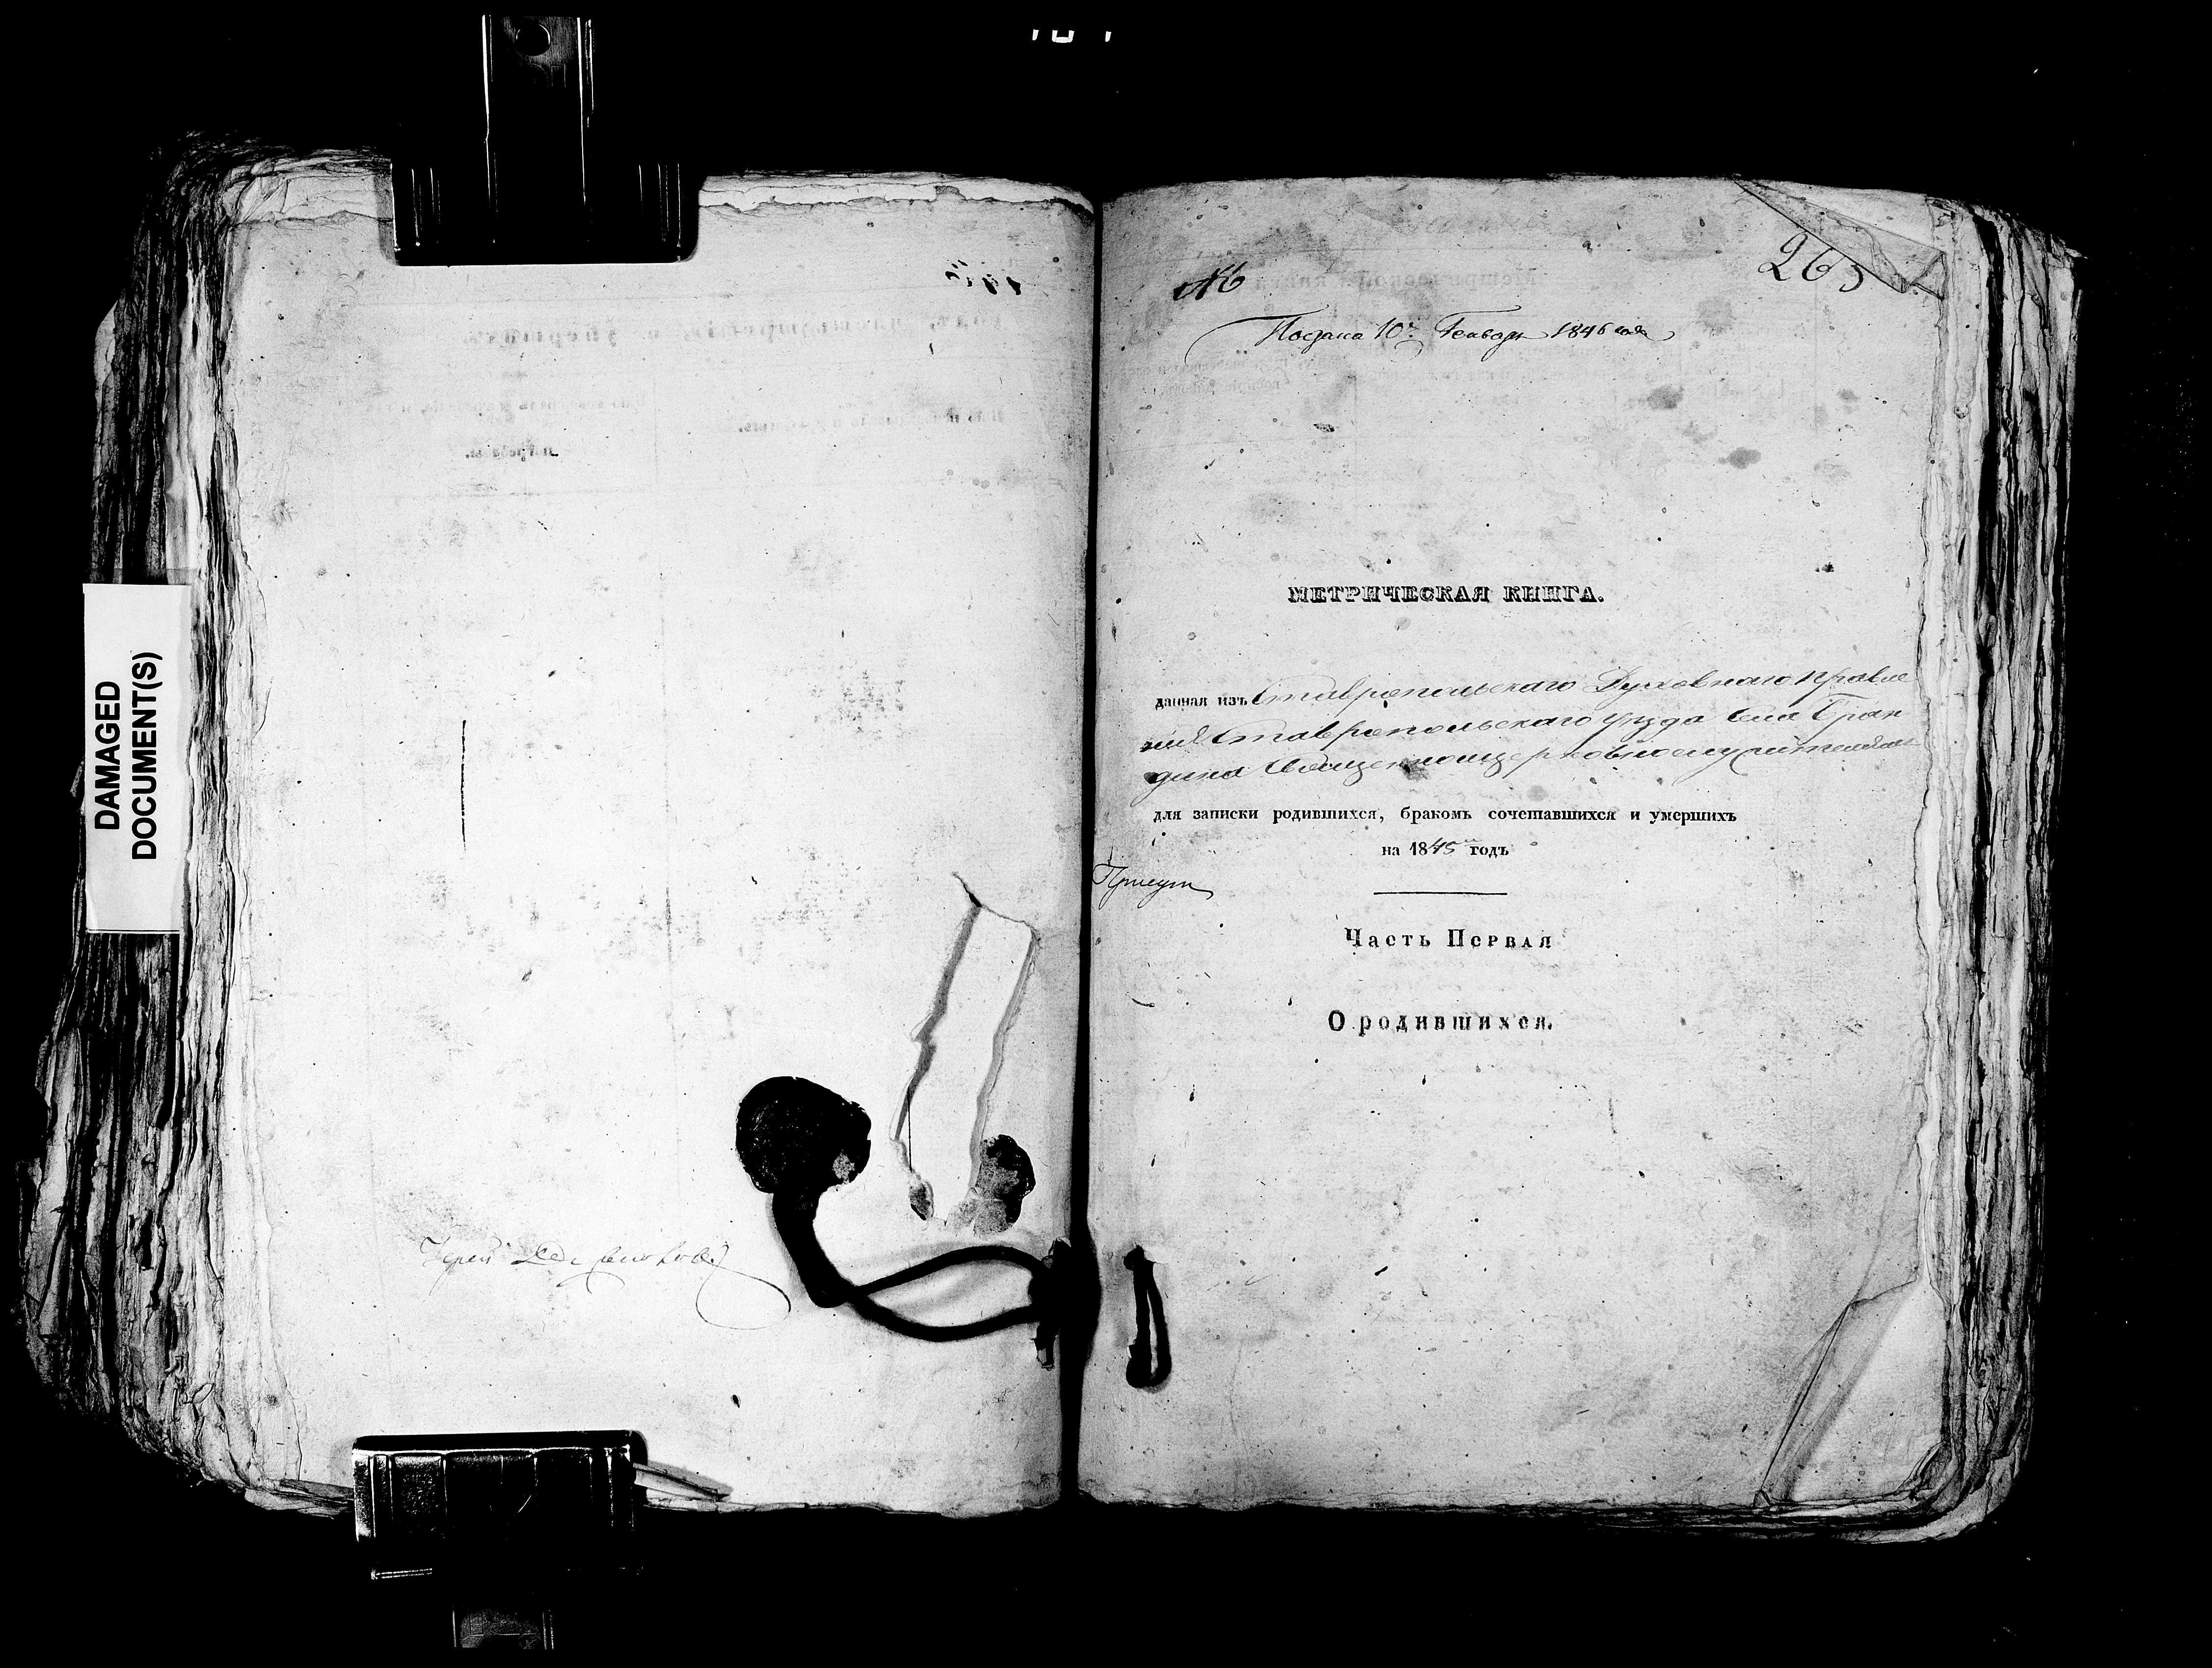 DAMAGED
DOCUMENT(S)
Иерей
265
№
Подана 10го Генваря 1846 года
МЕТРИЧЕСКАЯ КНИГА.
данная изъ Ставропольскаго Духовнаго Правле
нія Ставропольскаго уѣзда Села Бран
дина Священноцерковнослужителямъ
для записки родившихся, бракомъ сочетавшихся и умершихъ
на 1845й годъ
Присут
Часть Первая
О родившихся.